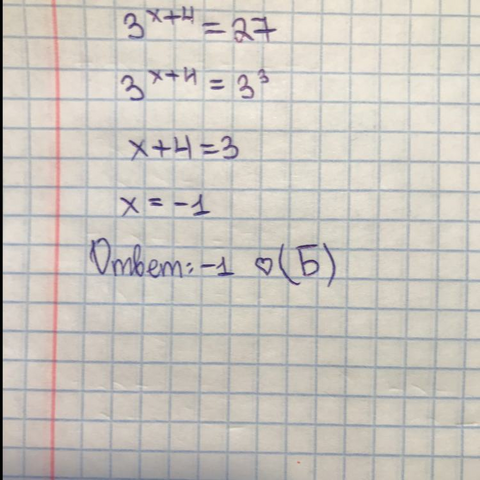 3^{x+4} = 27
3^{x+4} = 3^3
x+4=3
x = -1
Ответ: -1 ♡(Б)